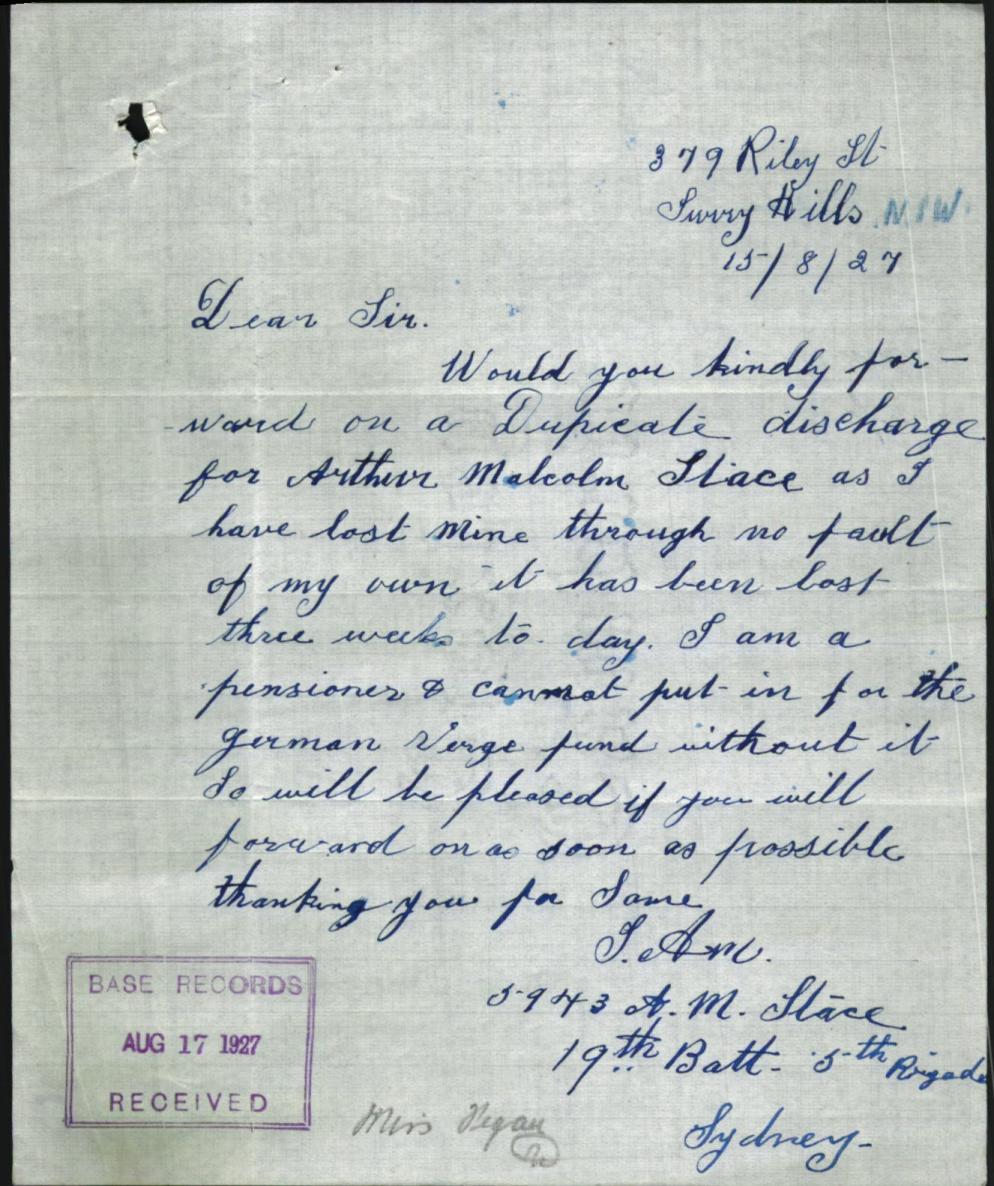 379 Riley St
Surry Hills N.S.W.
15/8/27
Dear Sir.
Would you kindly for-
-ward on a Dupicate discharge
for Arthur Malcolm Stace as I
have lost Mine through no fault
of my own it has been lost
three weeks to. day. I am a
pensioner & cannot put in for the
german Verge fund without it
So will be pleased if you will
forward on as soon as possible
thanking you for Same
I. Am.
5943 A. M. Stace
19th Batt. 5th Brigade
Sydney-
BASE RECORDS
AUG 17 1927
RECEIVED
Miss